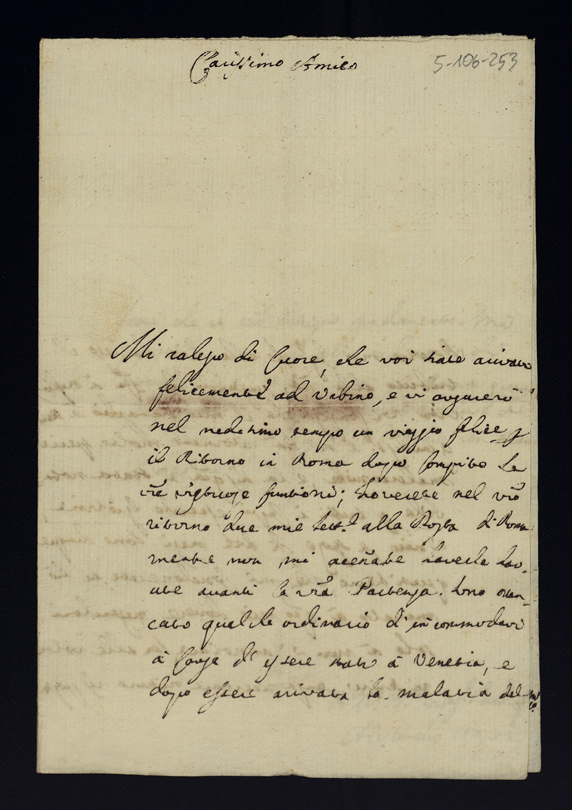 Carissimo Amico
5-106-253
Mi ralegro di Cuore, che voi siate arivato
felicemente ad Urbino, e vi augurerò
nel medesimo tempo un viaggio felice p
il Ritorno in Roma dopo Compite le
vre funtioni; troverete nel vro
ritorno due mie lett.e alla Posta di Roma
mentre non mi acenate haverle hau-
ute avanti la vra Partenza. Sono man-
cato qualche ordinario d'incommodarvi
à Causa d'essere stato à Venetia, e
dopo essere arivata la malatia del